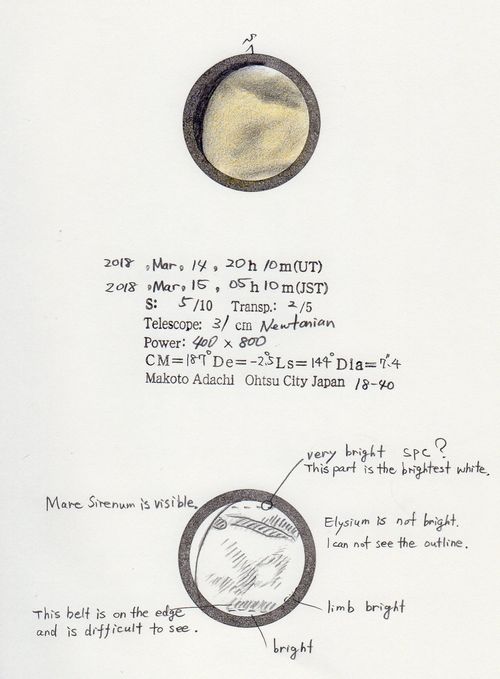 S
2018, Mar, 14, 20h 10m(UT)
2018, Mar, 15, 05h 10m(JST)
S: 5/10 Transp.: 2/5
Telescope: 31 cm Newtonian
Power: 400 x 800
CM=187° De=-2.5° Ls=144° Dia=7".4
Makoto Adachi Ohtsu City Japan 18-40
very bright spc?
This part is the brightest white.
Mare Sirenum is visible.
Elysium is not bright.
I can not see the outline.
This belt is on the edge
and is difficult to see.
limb bright
bright